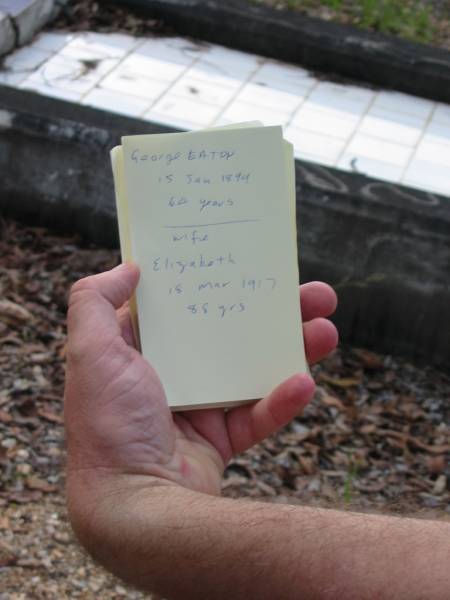 George EATON
15 Jan 1894
64 years
wife
Elizabeth
18 Mar 1917
88 yrs